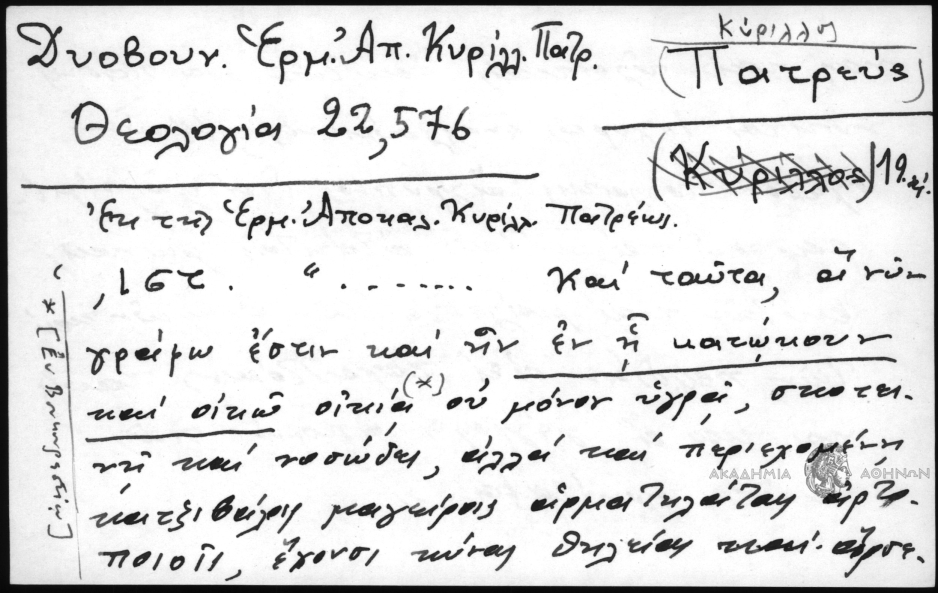 Δυοβουν. Ἑρμ. Ἀπ. Κυρίλλ. Πατρ.
Θεολογία 22, 576
Κύριλλος
(Πατρεύς)
(Κύριλλος) 19. αἰ.
Ἐκ τῆς Ἑρμ. Ἀποκαλ. Κυρίλλ. Πατρέως.
" ........ Καί ταῦτα, ἅ νῦν
γράφω ἐστιν καί ἦν ἐν ᾗ κατῴκουν
καί οἰκῶ οἰκίᾳ (*) οὐ μόνον ὑγρᾷ, σκοτει-
νῇ καί νοσώδει, ἀλλά καί περιεχομένῃ
μαγείροις ἁρματηλάταις ἀρτο-
ποιοῖς, ἔχουσι κύνας θηλείας καί ἄρσε-
* [ἐν Βουκουρεστίῳ]
ΑΚΑΔΗΜΙΑ ΑΘΗΝΩΝ